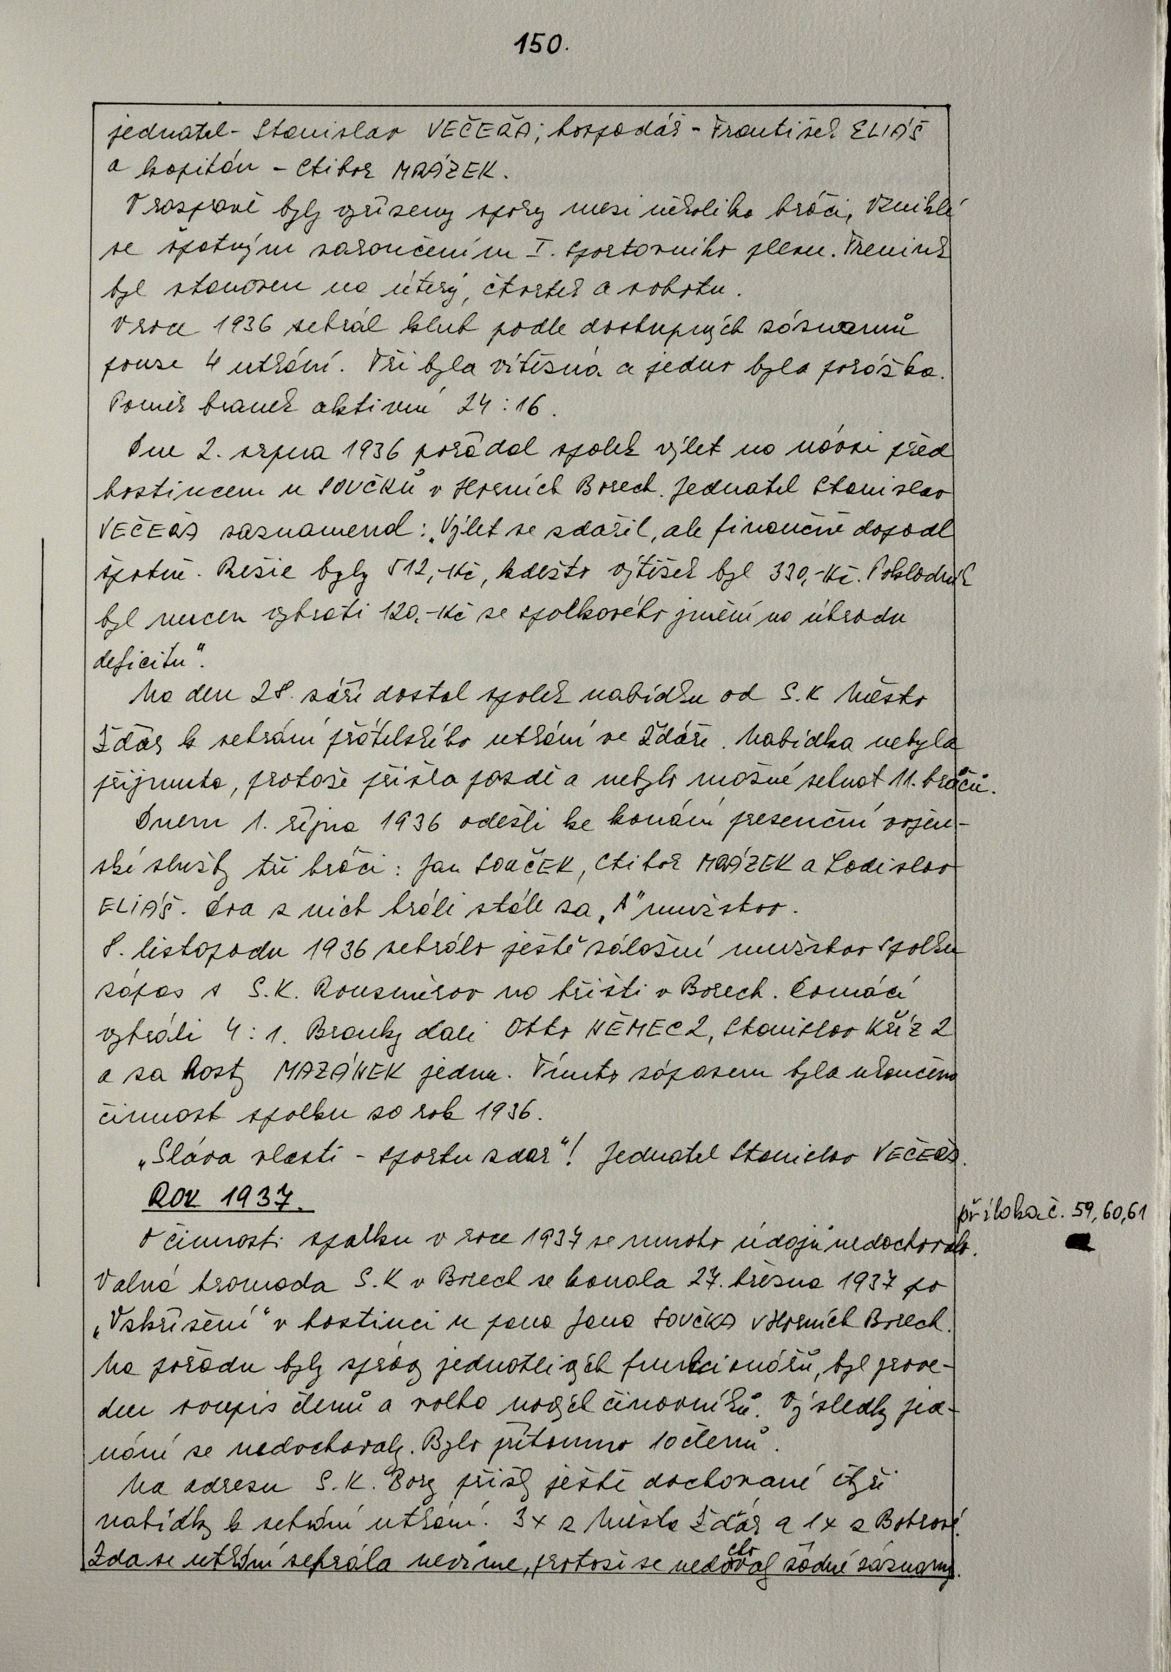 150.
jednatel - Stanislav VEČEŘA; hospodář - František ELIÁŠ
a kapitán - Ctibor MRÁZEK.
V rozpravě byly vyřízeny spory mezi několika hráči, vzniklé
se špatným zakončením I. sportovního plesu. Trenink
byl stanoven na úterý, čtvrtek a sobotu.
V roce 1936 sehrál klub podle dostupných záznamů
pouze 4 utkání. Tři byla vítězná a jedno byla porážka.
Poměr branek aktivní 24:16.
Dne 2. srpna 1936 pořádal spolek výlet na návsi před
hostincem u SOUČKŮ v Horních Borech. Jednatel Stanislav
VEČEŘA zaznamenal: „Výlet se zdařil, ale finančně dopadl
špatně. Režie byly 512,-Kč, kdežto výtěžek byl 330,-Kč. Pokladník
byl nucen vybrati 120,-Kč ze spolkového jmění na úhradu
deficitu".
Na den 28. září dostal spolek nabídku od S.K Město
Žďár k sehrání přátelského utkání ve Žďáře. Nabídka nebyla
přijmuta, protože přišla pozdě a nebylo možné sehnat 11. hráčů.
Dnem 1. října 1936 odešli ke konání presenční vojen-
ské služby tři hráči: Jan SOUČEK, Ctibor MRÁZEK a Ladislav
ELIÁŠ. Dva z nich hráli stále za „A" mužstvo.
8. listopadu 1936 sehrálo ještě záložní mužstvo spolku
zápas s S.K. Rousměrov na hřišti v Borech. Domácí
vyhráli 4:1. Branky dali Otto NĚMEC 2, Stanislav KŘÍŽ 2
a za hosty MAZÁNEK jednu. Tímto zápasem byla ukončena
činnost spolku za rok 1936.
„Sláva vlasti - sportu zdar"! Jednatel Stanislav VEČEŘA.
ROK 1937.
příloha č. 59, 60, 61
O činnosti spolku v roce 1937 se mnoho údajů nedochovalo.
Valná hromada S.K v Borech se konala 27. března 1937 po
„Vzkříšení" v hostinci u pana Jana SOUČKA v Horních Borech.
Na pořadu byly zprávy jednotlivých funkcionářů, byl prove-
den soupis členů a volba nových činovníků. Výsledky jed-
nání se nedochovaly. Bylo přítomno 10 členů.
Na adresu S.K. Bory přišly ještě dochované čtyři
nabídky k sehrání utkání. 3x z Města Žďár a 1x z Bobrové.
Zda se utkání sehrála nevíme, protože se nedochovaly žádné záznamy.